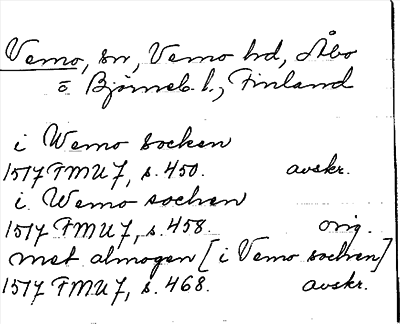 Vemo, sn, Vemo hd, Åbo
o Björneb. l., Finland
i Wemo socken
1517 FMU 7, s. 450. avskr.
i Wemo sochen
1517 FMU 7, s. 458. orig.
met almogen [i Vemo sochen]
1517 FMU 7, s. 468. avskr.